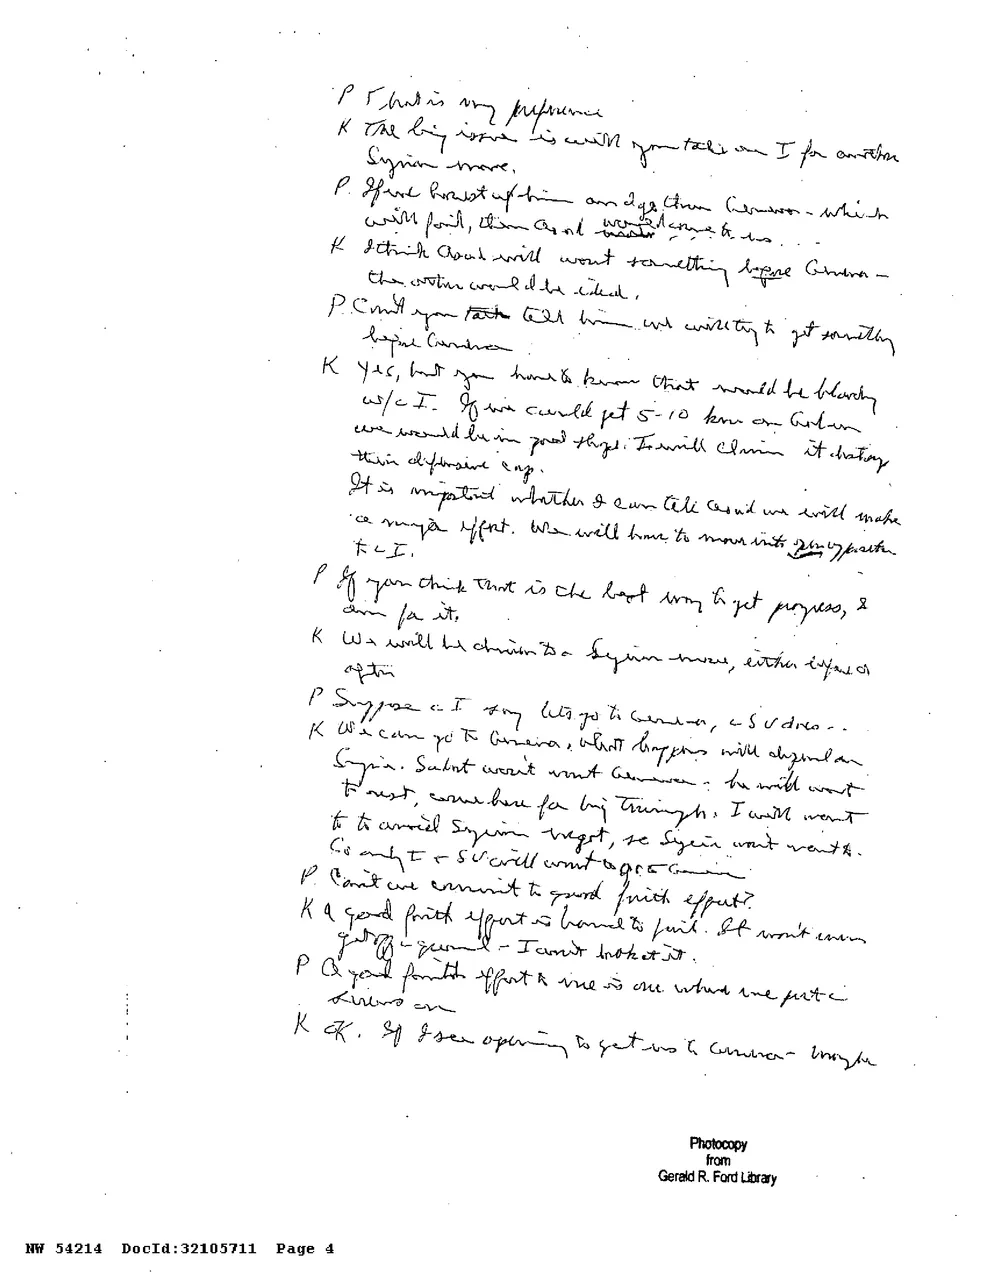 P That is my preference
K The big issue is will you take on I for another
Syrian move.
P. If we hold up him and go thru Geneva - which
will fail, then Asad would come to us ...
K I think Asad will want something before Geneva -
the other would be ideal.
P. Can't you talk tell him we will try to get something
before Geneva
K Yes, but you have to know that would be bloody
w/ I. If we could get 5-10 km on Golan
we would be in good shape. I will claim it destroys
their defensive cap.
It is important whether I can tell Asad we will make
a major effort. We will have to move into opposition
to I.
P If you think that is the best way to get progress, I
am for it.
K We will be driven to a Syrian move, either before or
after
P Suppose I say lets go to Geneva, SU does ..
K We can go to Geneva, what happens will depend on
Syria. Sadat won't want Geneva - he will want
to rest, come here for big triumph. I will want
to to avoid Syrian negot, so Syria won't want to.
So only I + SU will want to go to Geneva
P. Can't we commit to good faith effort?
K A good faith effort is bound to fail. It won't even
get off ground - I won't look at it.
P A good faith effort to me is one where we put
screws on
K OK. If I see opening to get us to Geneva - maybe
Photocopy
from
Gerald R. Ford Library
NW 54214 DocId:32105711 Page 4